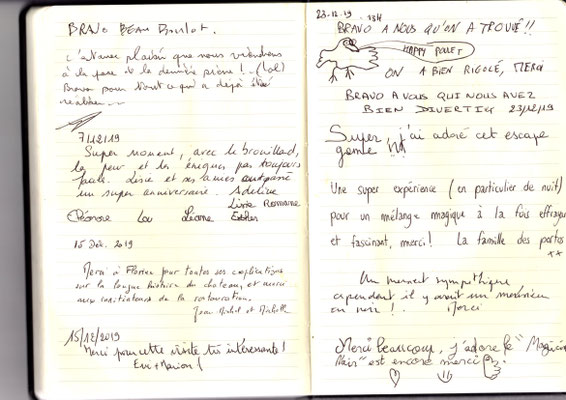 BRAVO BEAU Boulot.
c'est avec plaisir que nous viendrons
à la pose de la dernière pierre ! (lol)
Bravo pour tout ce qui a déjà été
7/12/19
Super moment, avec le brouillard,
la peur et les énigmes pas toujours
facile. Lisie et ses amies ont passé
un super anniversaire. Adeline
Lisie Romane
Éléonore Lou Léanne Esther
15 Déc. 2019
Merci à Florian pour toutes ses explications
sur la longue histoire du chateau, et merci
aux initiateurs de la restauration.
Jean Michel et Michelle
15/12/2019
Merci pour cette visite très intéressante !
Eve + Marion !
23.12.19 13H
BRAVO A NOUS QU'ON A TROUVÉ !!
HAPPY POULET
ON A BIEN RIGOLÉ, MERCI
BRAVO A VOUS QUI NOUS AVEZ
BIEN DIVERTIG 23/12/19
Super, j'ai adoré cet escape
game !!
Une super expérience (en particulier de nuit)
pour un mélange magique à la fois effrayant
et fascinant, merci ! La famille des
xx
Un moment sympathique
cependant il y avait un
au noir ! Merci
Merci beaucoup, j'adore le "Magicien
Noir" est encore merci.